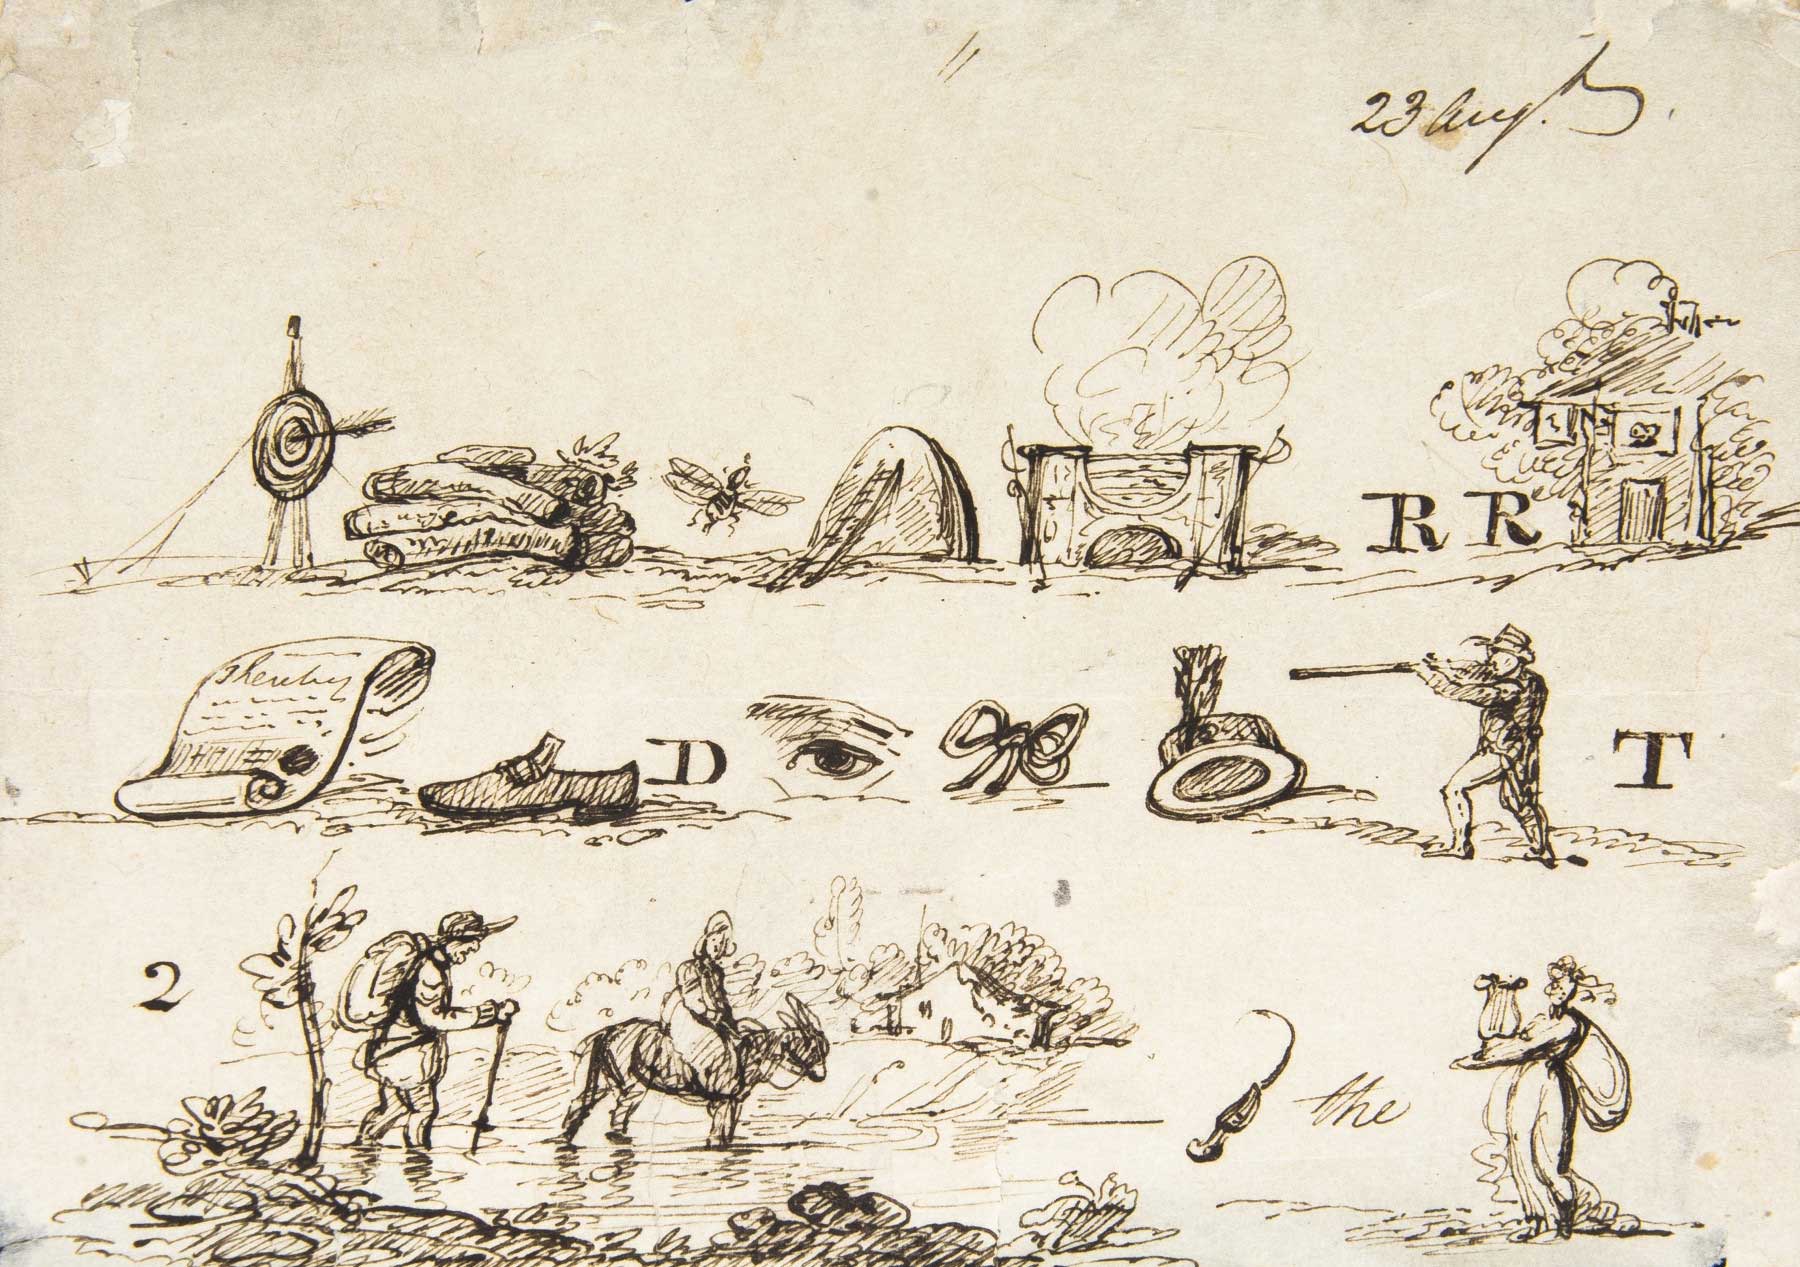 23 Aug.
R R
Thereby
D
T
2
the